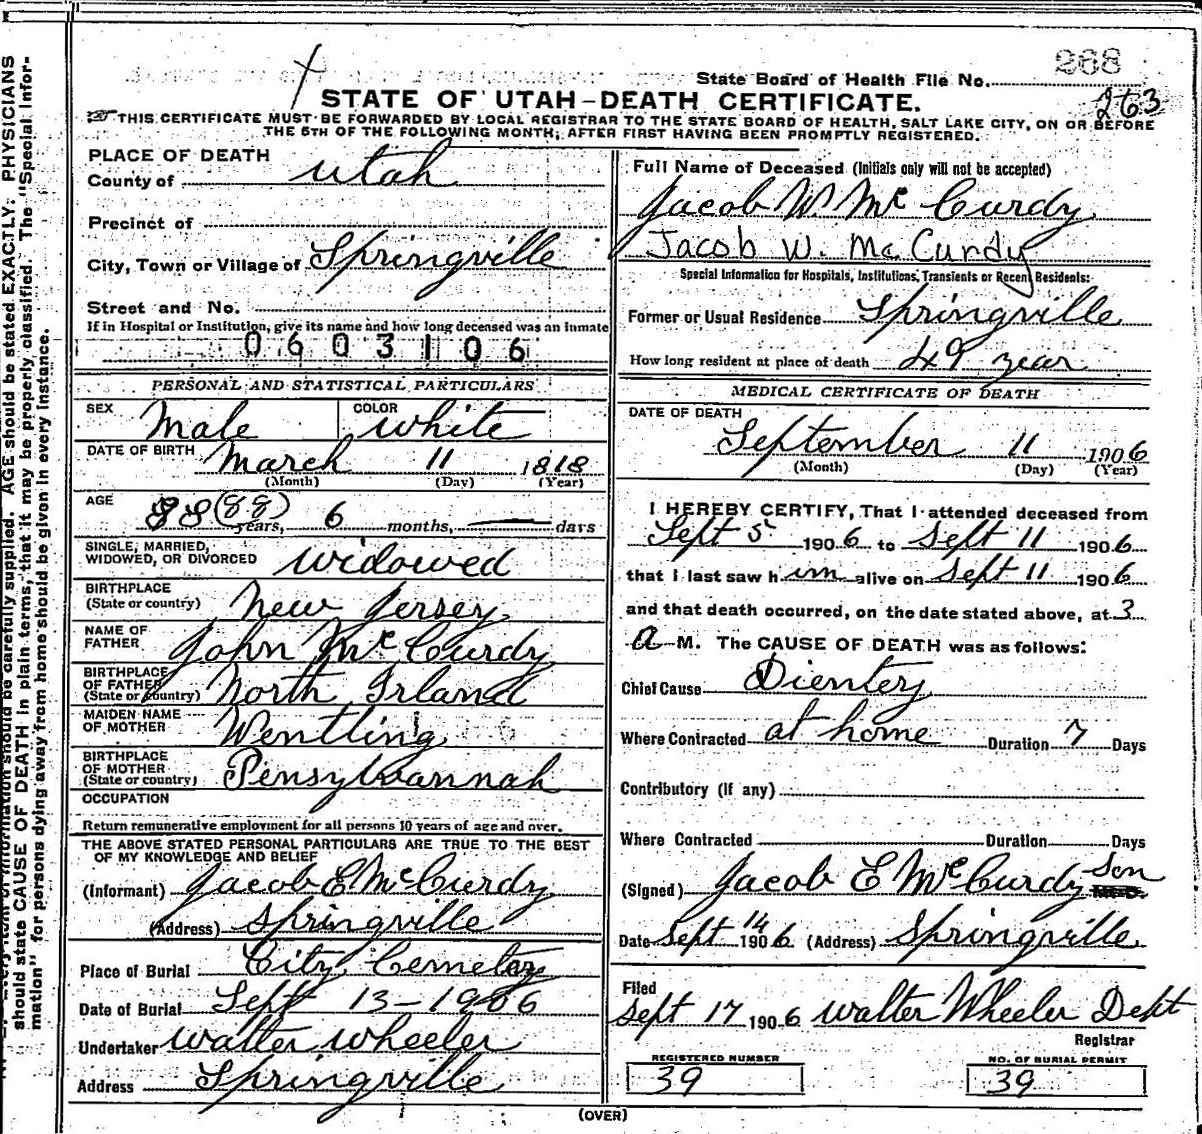 268
State Board of Health File No.
263
STATE OF UTAH-DEATH CERTIFICATE.
THIS CERTIFICATE MUST BE FORWARDED BY LOCAL REGISTRAR TO THE STATE BOARD OF HEALTH, SALT LAKE CITY, ON OR BEFORE
THE 5TH OF THE FOLLOWING MONTH; AFTER FIRST HAVING BEEN PROMPTLY REGISTERED.
PLACE OF DEATH
County of Utah
Precinct of
City, Town or Village of Springville
Street and No.
If in Hospital or Institution, give its name and how long deceased was an inmate
0603106
PERSONAL AND STATISTICAL PARTICULARS
SEX Male COLOR white
DATE OF BIRTH March 11 1818
(Month) (Day) (Year)
AGE 88 (88) years, 6 months, days
SINGLE, MARRIED,
WIDOWED, OR DIVORCED widowed
BIRTHPLACE
(State or country) New Jersey
NAME OF
FATHER John McCurdy
BIRTHPLACE
OF FATHER
(State or country) North Irland
MAIDEN NAME
OF MOTHER Wentling
BIRTHPLACE
OF MOTHER
(State or country) Pensylvannah
OCCUPATION
Return remunerative employment for all persons 10 years of age and over.
THE ABOVE STATED PERSONAL PARTICULARS ARE TRUE TO THE BEST
OF MY KNOWLEDGE AND BELIEF
(Informant) Jacob E McCurdy
(Address) Springville
Place of Burial City Cemetery
Date of Burial Sept 13-1906
Undertaker Walter Wheeler
Address Springville
Full Name of Deceased (Initials only will not be accepted)
Jacob W. McCurdy
Jacob W. McCurdy
Special Information for Hospitals, Institutions, Transients or Recent Residents:
Former or Usual Residence Springville
How long resident at place of death 49 year
MEDICAL CERTIFICATE OF DEATH
DATE OF DEATH
September 11 1906
(Month) (Day) (Year)
I HEREBY CERTIFY, That I attended deceased from
Sept 5 1906 to Sept 11 1906
that I last saw him alive on Sept 11 1906
and that death occurred, on the date stated above, at 3
a M. The CAUSE OF DEATH was as follows:
Chief Cause Dientery
Where Contracted at home Duration 7 Days
Contributory (if any)
Where Contracted Duration Days
(Signed) Jacob E McCurdy Son
Date Sept 14 1906 (Address) Springville
Filed
Sept 17 1906 Walter Wheeler Dept
Registrar
REGISTERED NUMBER
39
NO. OF BURIAL PERMIT
39
(OVER)
should be carefully supplied. AGE should be stated EXACTLY. PHYSICIANS
should state CAUSE OF DEATH in plain terms, that it may be properly classified. The "Special Infor-
mation" for persons dying away from home should be given in every instance.